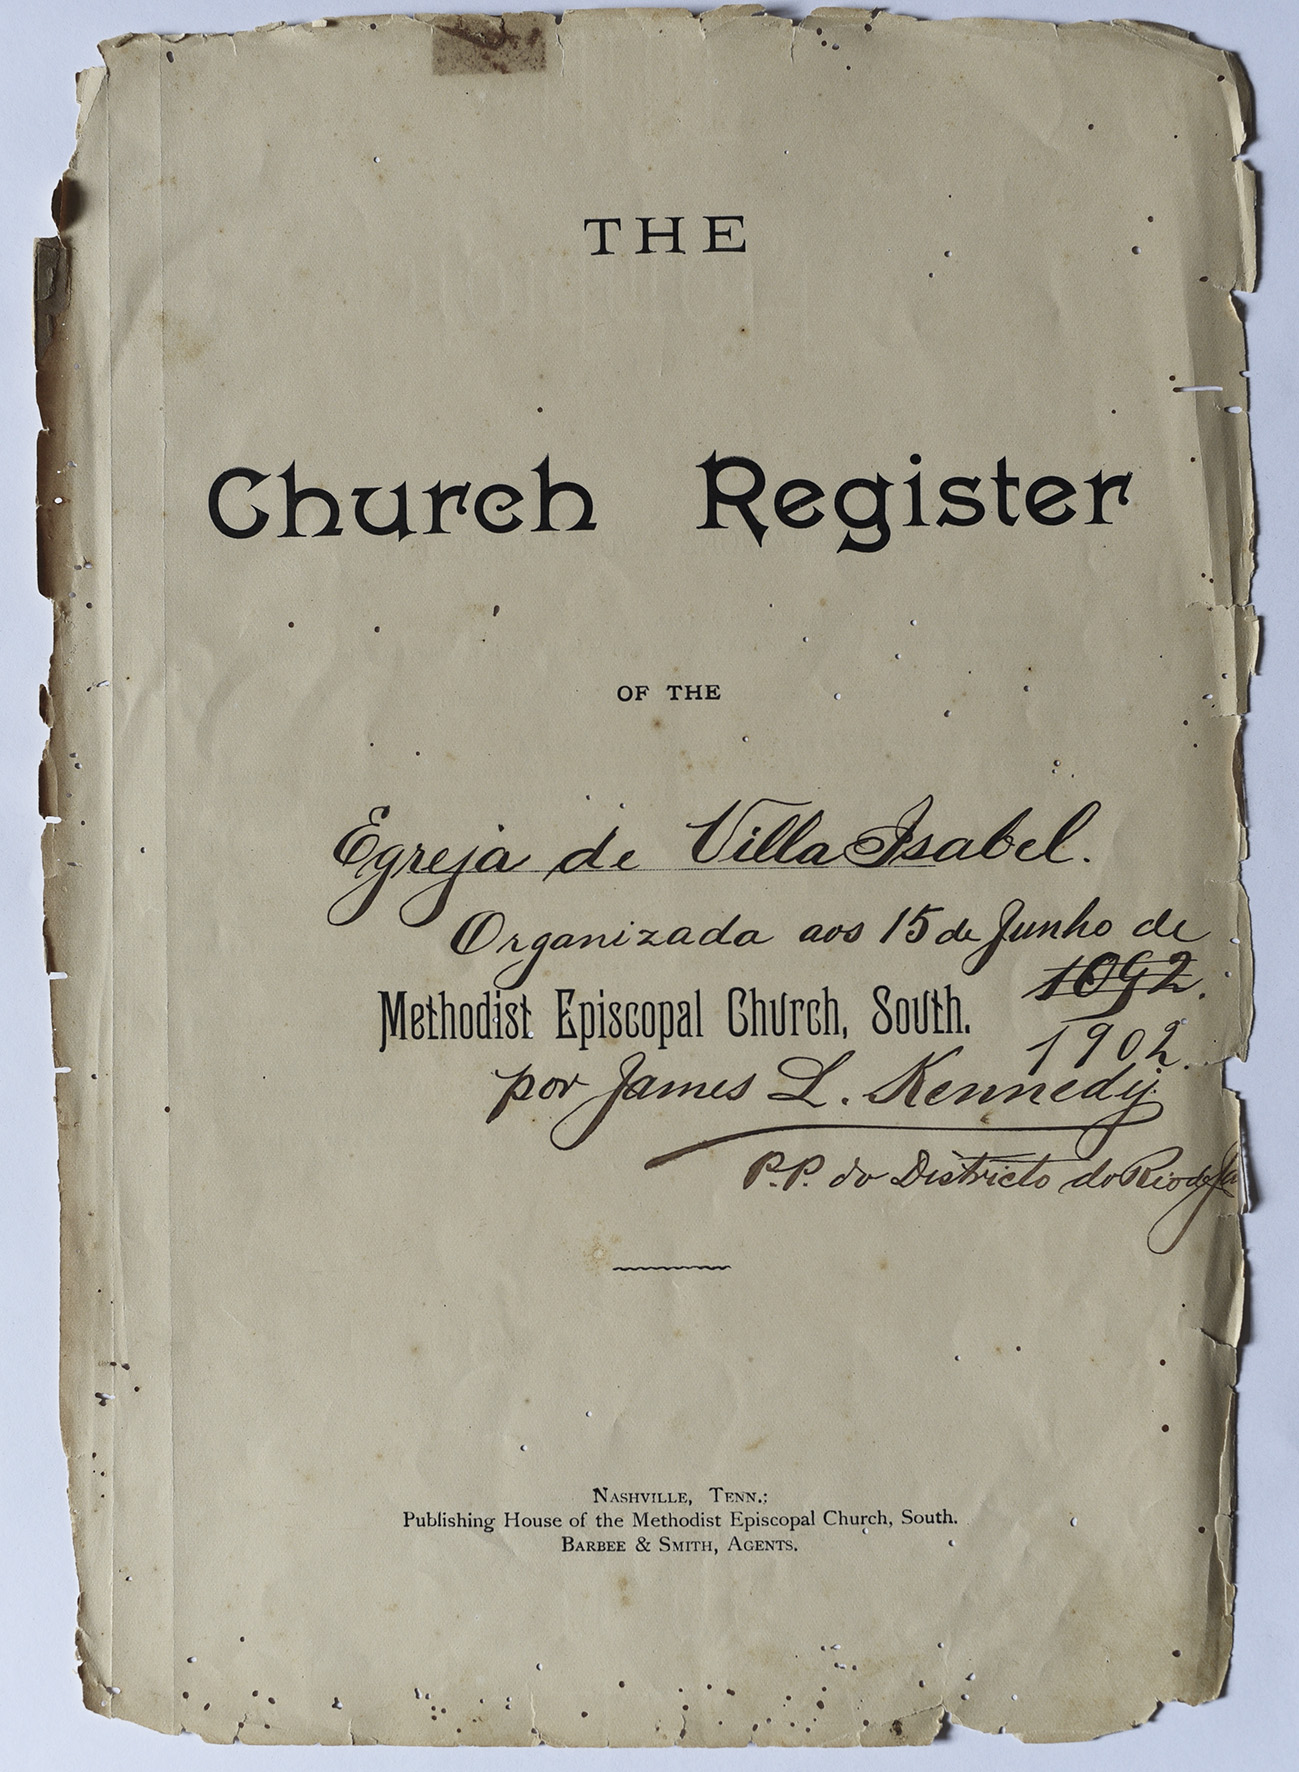 THE
Church Register
OF THE
Egreja de Villa Isabel.
Organizada aos 15 de Junho de
1092.
Methodist Episcopal Church, South.
1902.
por James L. Kennedy
P.P. do Districto do Rio de Ja
NASHVILLE, TENN.:
Publishing House of the Methodist Episcopal Church, South.
BARBEE & SMITH, AGENTS.